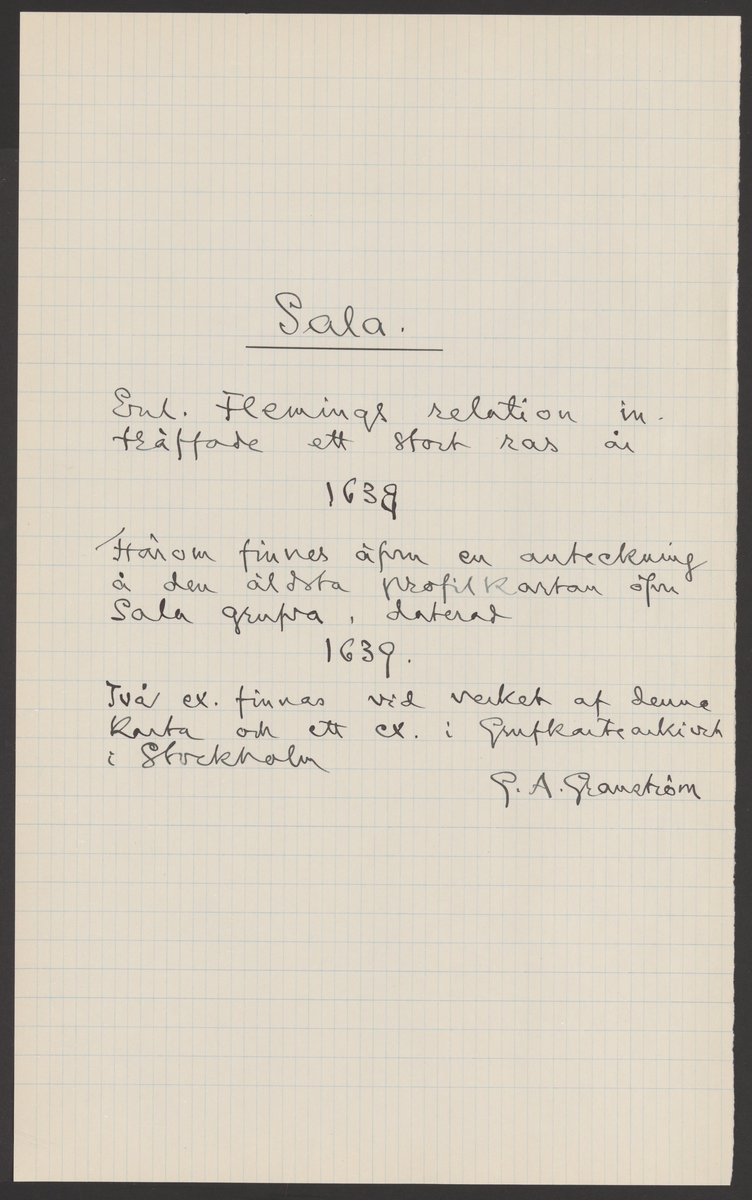 Sala.
Enl. Flemings relation in-
träffade ett stort ras år
1638
Härom finnes äfvn en anteckning
å den äldsta profilkartan öfvr
Sala grufva, daterad
1639.
Två ex. finnas vid verket af denna
karta och ett ex. i Grufkartearkivet
i Stockholm
G. A. Granström